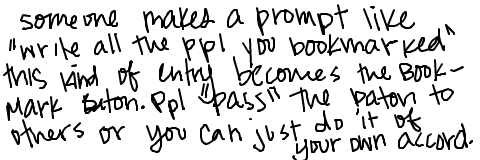 someone makes a prompt like
"write all the ppl you bookmarked"
this kind of entry becomes the Book-
Mark baton. Ppl "pass" the baton to
others or you can just do it of
your own accord.